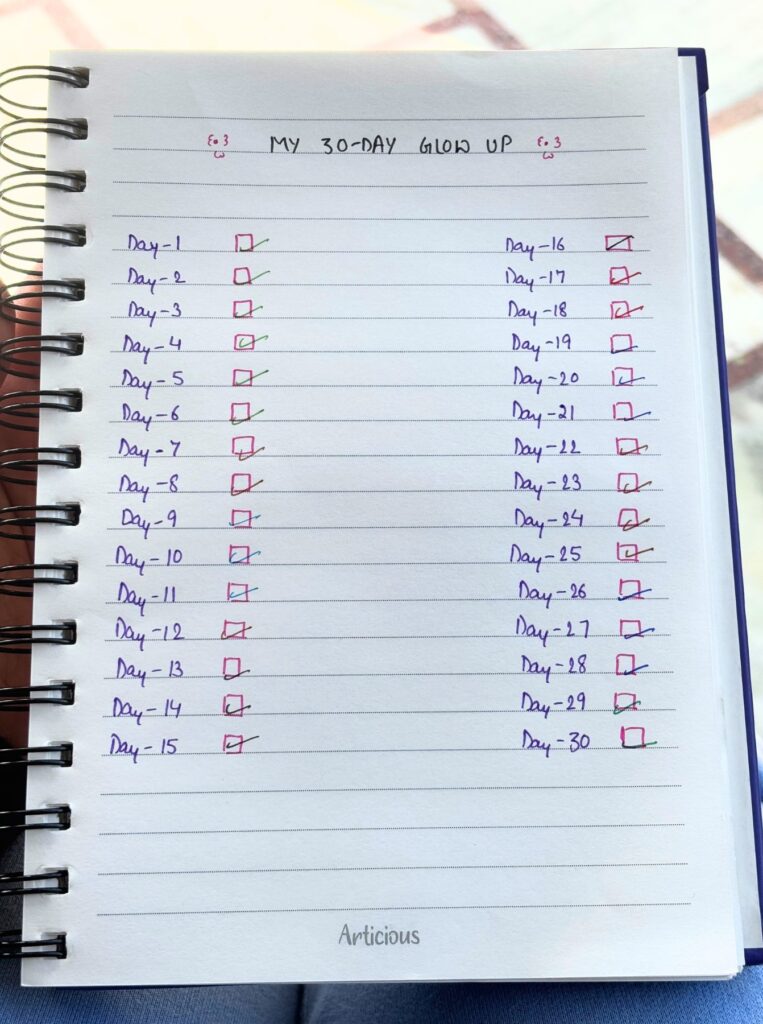 MY 30-DAY GLOW UP
Day-1
Day-2
Day-3
Day-4
Day-5
Day-6
Day-7
Day-8
Day-9
Day-10
Day-11
Day-12
Day-13
Day-14
Day-15
Day-16
Day-17
Day-18
Day-19
Day-20
Day-21
Day-22
Day-23
Day-24
Day-25
Day-26
Day-27
Day-28
Day-29
Day-30
Articious